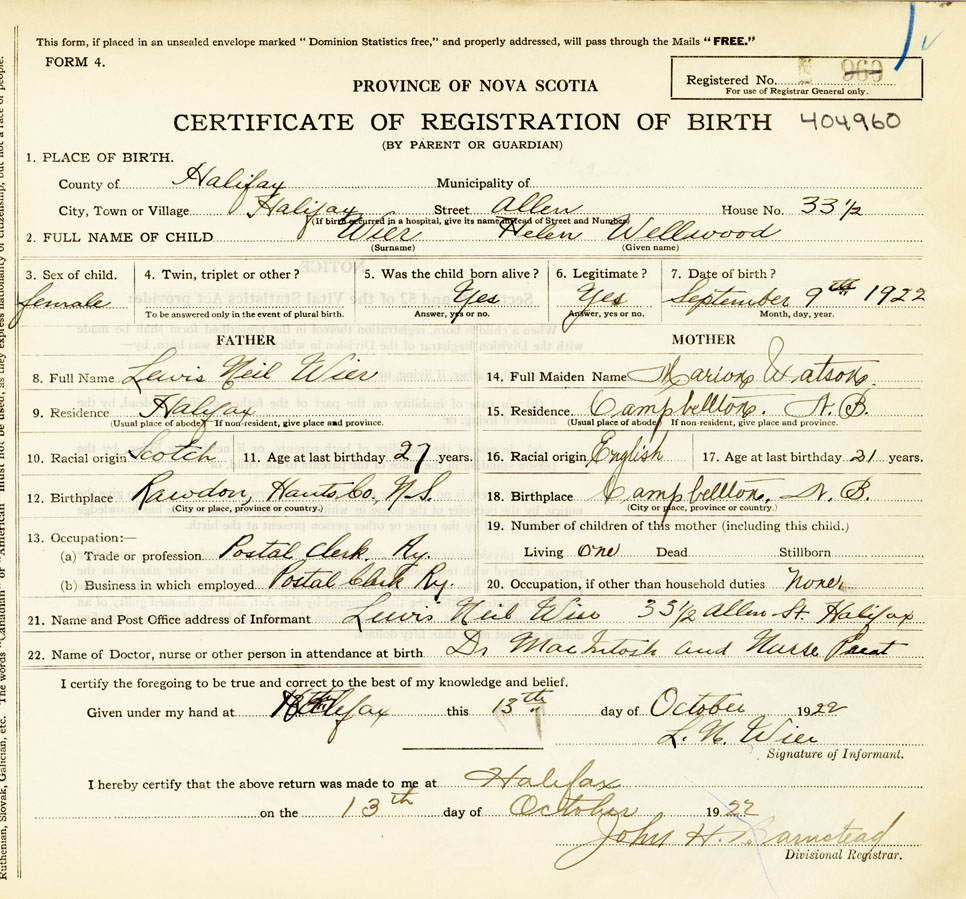 This form, if placed in an unsealed envelope marked "Dominion Statistics free," and properly addressed, will pass through the Mails "FREE."
FORM 4.
Registered No. 960
For use of Registrar General only.
PROVINCE OF NOVA SCOTIA
CERTIFICATE OF REGISTRATION OF BIRTH 404960
(BY PARENT OR GUARDIAN)
1. PLACE OF BIRTH.
County of Halifax Municipality of
City, Town or Village Halifax Street Allen House No. 33½
(If birth occurred in a hospital, give its name instead of Street and Number)
2. FULL NAME OF CHILD Wier Helen Wellwood
(Surname) (Given name)
3. Sex of child. 4. Twin, triplet or other? 5. Was the child born alive? 6. Legitimate? 7. Date of birth?
female Yes Yes September 9th 1922
To be answered only in the event of plural birth. Answer, yes or no. Answer, yes or no. Month, day, year.
FATHER MOTHER
8. Full Name Lewis Neil Wier 14. Full Maiden Name Marion Watson.
9. Residence Halifax 15. Residence. Campbellton. N.B.
(Usual place of abode) If non-resident, give place and province. (Usual place of abode) If non-resident, give place and province.
10. Racial origin Scotch 11. Age at last birthday 27 years. 16. Racial origin English 17. Age at last birthday 21 years.
12. Birthplace Rawdon, Hants Co. N.S. 18. Birthplace Campbellton, N.B.
(City or place, province or country.) (City or place, province or country.)
13. Occupation:— 19. Number of children of this mother (including this child.)
(a) Trade or profession Postal Clerk Ry. Living one Dead Stillborn
(b) Business in which employed Postal Clerk Ry. 20. Occupation, if other than household duties None
21. Name and Post Office address of Informant Lewis Neil Wier 33½ Allen St. Halifax
22. Name of Doctor, nurse or other person in attendance at birth Dr MacIntosh and Nurse
I certify the foregoing to be true and correct to the best of my knowledge and belief.
Given under my hand at Halifax this 13th day of October 1922
L. N. Wier
Signature of Informant.
I hereby certify that the above return was made to me at Halifax
on the 13th day of October 1922
John H. Barnstead
Divisional Registrar.
Ruthenian, Slovak, Galician, etc. The words "Canadian" or "American" must not be used, as they express nationality or citizenship, but not a race of people.